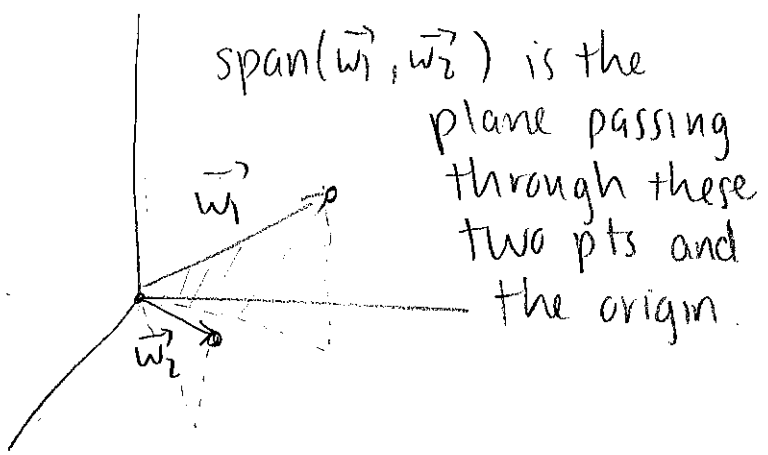 span(w⃗1, w⃗2) is the
plane passing
through these
two pts and
the origin.
w⃗1
w⃗2